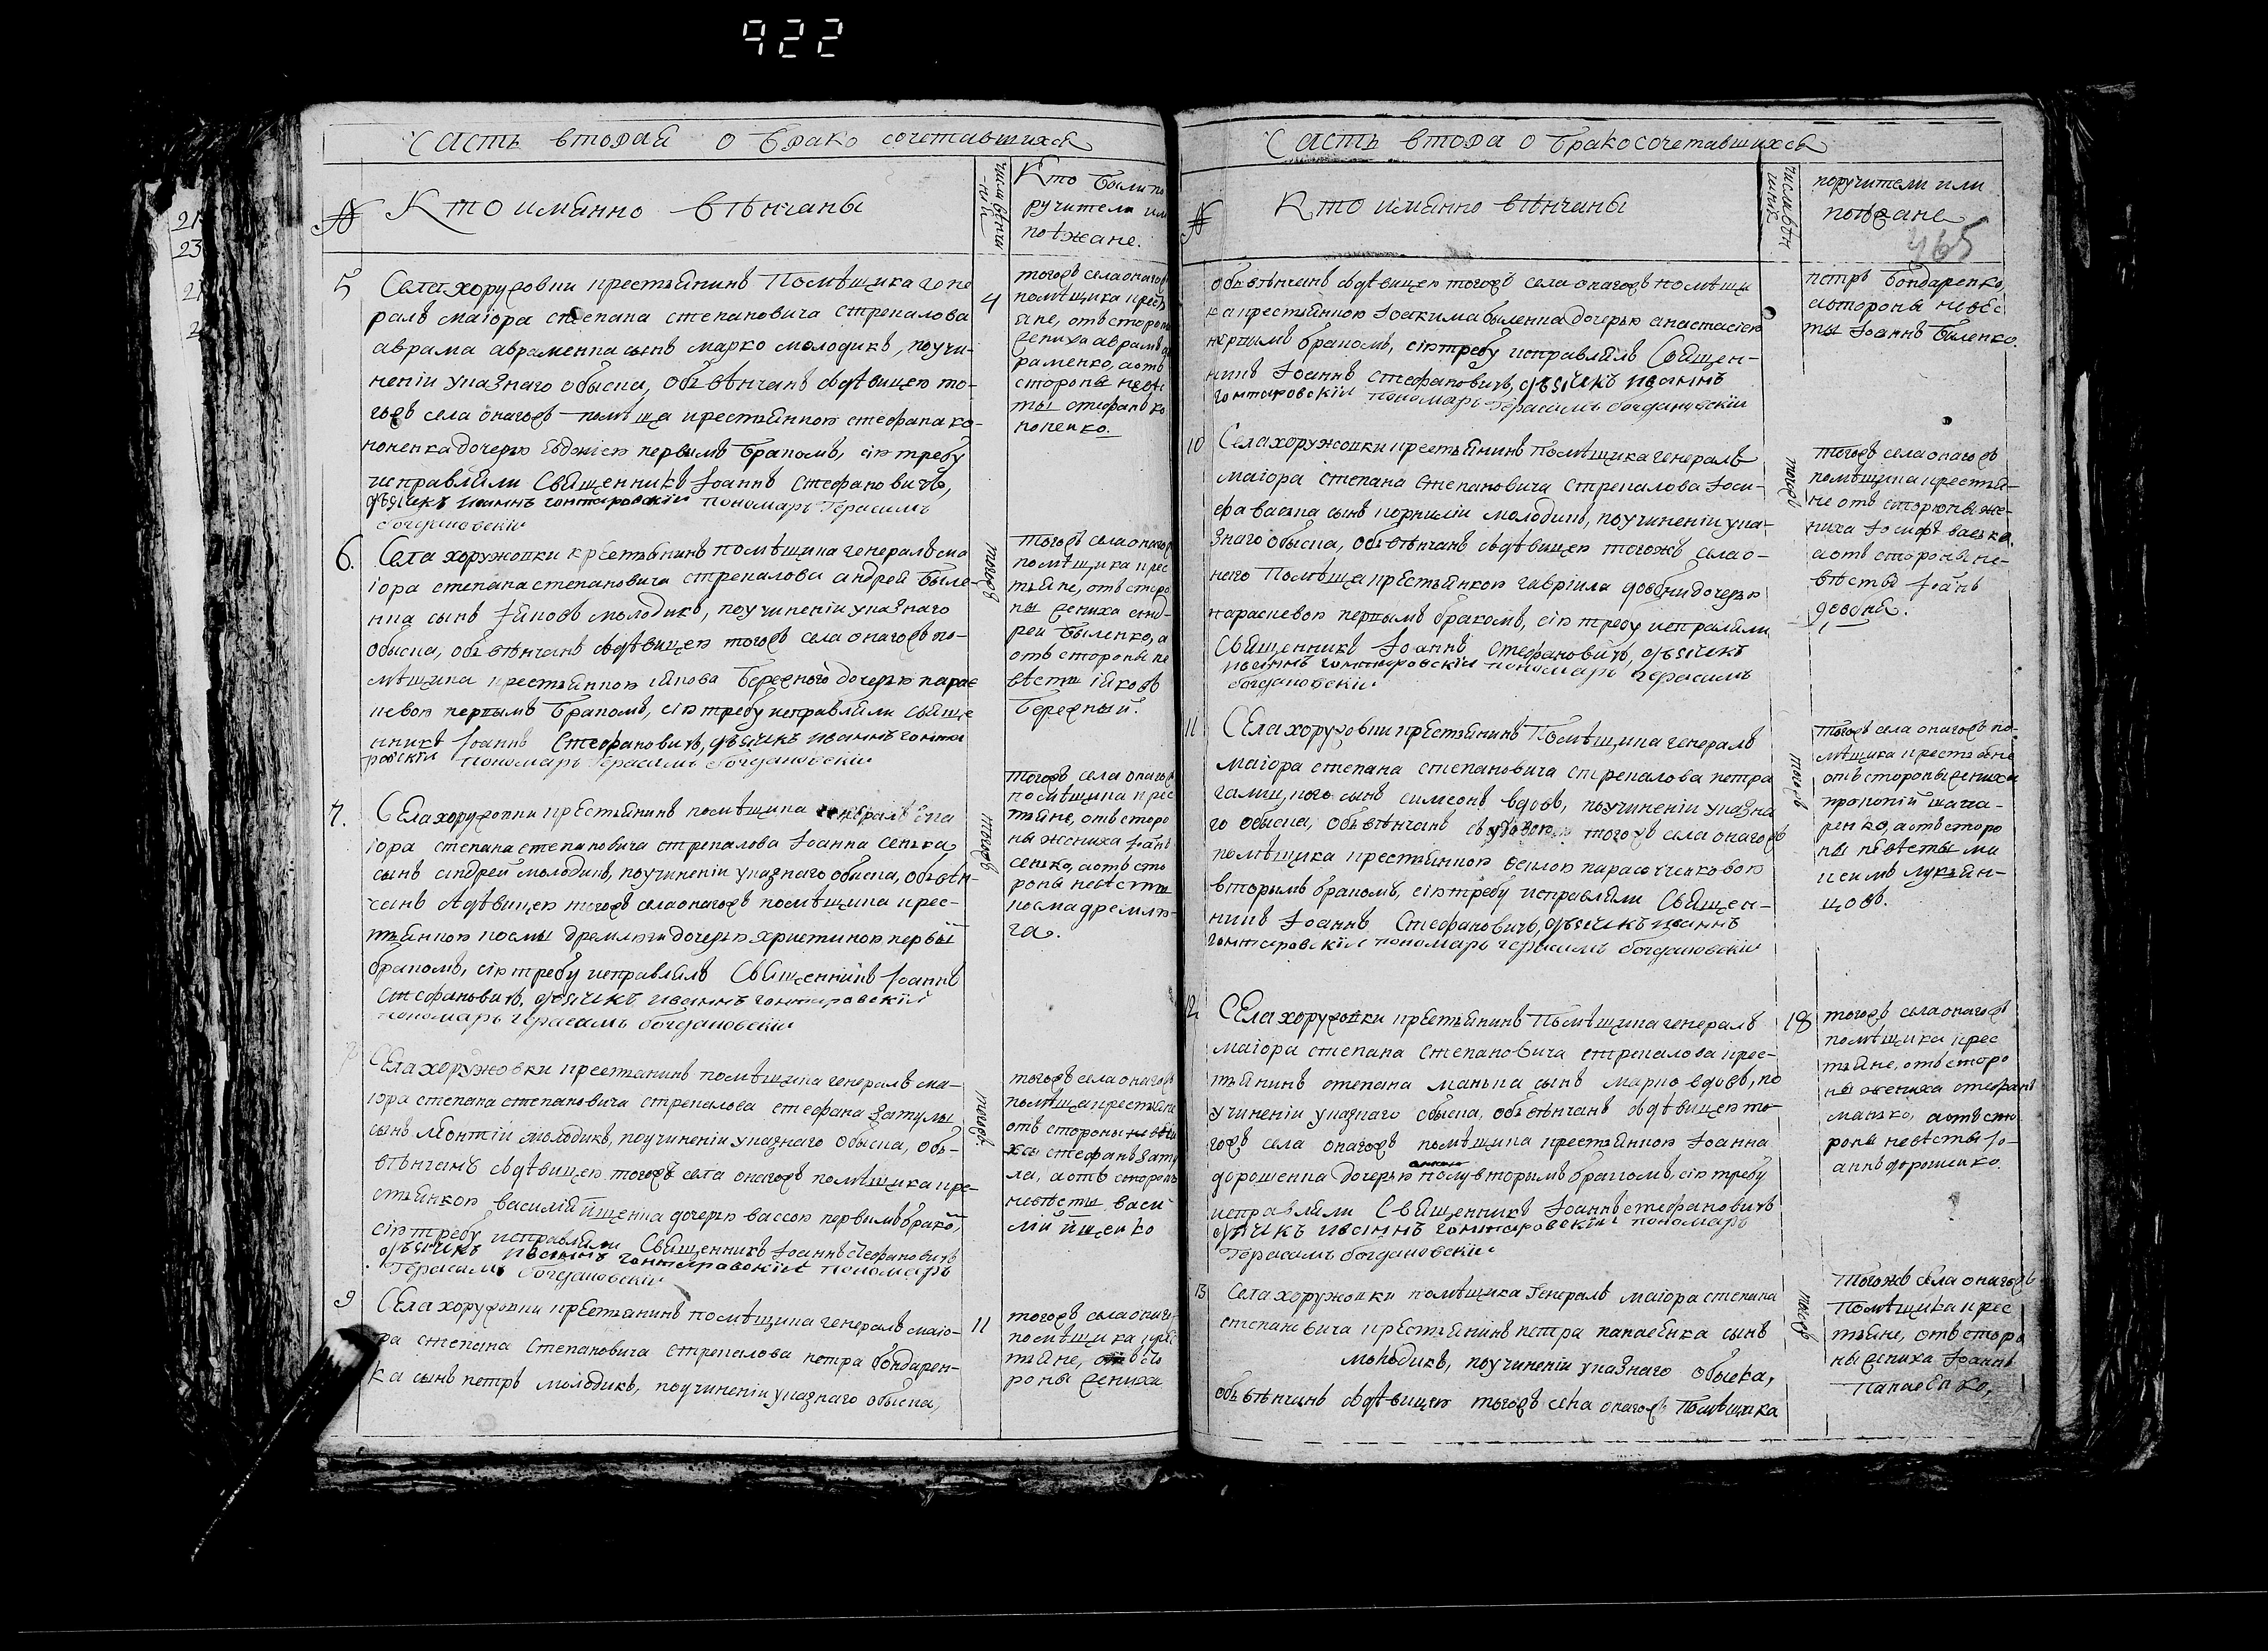 922
Часть вторая о Брако сочетавшихся
№
Кто имянно вѣнчаны
Кто были по
ручители ил
поѣжане.
5
Села хоружовки крестьянинъ Помѣщика гене
ралъ маіора степана степановича стрекалова
аврама авраменка сынъ марко молодикъ, поучи-
неніи указнаго обыска, обьвѣнчанъ здѣвицею то-
гожъ села онагожъ помѣща крестьянкою стефана ко-
ноненка дочерью Евдокіею первымъ Бракомъ, сію требу
исправляли Священникъ Іоаннъ Стефановичъ,
дьячикъ иваннъ гонтаровскій пономарь Герасимъ
богдановскій
4
тогожъ села онагожъ
помѣщика крестъ
яне, отъ стороны
жениха аврамъ ав
раменко, а отъ
стороны невѣс
ты стефанъ ко
ноненко.
6.
Села хоружовки крестьянинъ помѣщика генералъ ма
іора степана степановича стрекалова андрей Быле-
нка сынъ Іяковъ молодикъ, поучиненіи указнаго
обыска, обьвѣнчанъ здѣвицею тогожъ села онагожъ по-
мѣщика крестьянкою іякова Бережного дочерью парас
кевою первымъ Бракомъ, сію требу исправляли свяще
нникъ Іоаннъ Стефановичъ, дьячикъ иваннъ гонта
ровскій пономарь Герасимъ богдановскій
тогожъ
тогожъ села онагожъ
помѣщика крес
тьяне, отъ сторо
ны жениха анд-
рей Быленко, а
отъ стороны не
вѣсты іяковъ
Бережный.
7.
Села хоружовки крестьянинъ помѣщика генералъ ма
іора степана степановича стрекалова Іоанна сенька
сынъ андрей молодикъ, поучиненіи указнаго обыска, обьвѣн-
чанъ здѣвицею тогожъ села онагожъ помѣщика крес-
тьянкою козмы дремлюги дочерью христиною первы
бракомъ, сію требу исправлялъ Священникъ Іоаннъ
Стефановичъ, дьячикъ иваннъ гонтаровскій
пономарь герасимъ богдановскій
тогожъ
тогожъ села онагожъ
помѣщика крес
тьяне, отъ сторо
ны жениха Іоанъ
сенько, а отъ сто
роны невѣсты
козма дремлю-
га.
Села хоружовки крестянинъ помѣщика генералъ ма-
іора степана степановича стрекалова стефана Затулы
сынъ Леонтій молодикъ, поучиненіи указнаго обыска, обь-
вѣнчанъ здѣвицею тогожъ села онагожъ помѣщика кре-
стьянкою василій йщенка дочерью вассою первымъ брако,
сію требу исправляли Священникъ Іоаннъ Стефановичъ
дьячикъ иваннъ гонтаровскій пономарь
Герасимъ богдановскій
тогожъ
тогожъ села онагожъ
помѣща крестьяне
отъ стороны
ха стефанъ Зату
ла, а отъ стороны
невѣсты васи
лій йщенко
9
Села хоружовки крестьянинъ помѣщика генералъ маіо-
ра степана степановича стрекалова петра бондарен-
ка сынъ петръ молодикъ, поучиненіи указнаго обыска,
11
тогожъ села онаго
помѣщика крес
тьяне, отъ сто
роны жениха
Часть втора о бракосочетавшихся
№
Кто имянно вѣнчаны
поручители или
поѣжане
465
обьвѣнчанъ здѣвицею тогожъ села онагожъ помѣщи
ка крестьянкою Іоакима быленка дочерью анастасіею
первымъ бракомъ, сію требу исправлялъ Священ-
никъ Іоаннъ стефановичъ, дьячикъ иваннъ
гонтаровскій пономарь Герасимъ богдановскій
петръ бондаренко,
а стороны невѣс
ты Іоаннъ Биленко.
10
Села хоружовки крестьянинъ Помѣщика генералъ
маіора степана степановича стрекалова Іоси-
фа васька сынъ корнилій молодикъ, поучиненіи ука-
знаго обыска, обьвѣнчанъ здѣвицею тогожъ села о-
наго Помѣща крестьянкою гавріила довбни дочерью
параскевою первымъ бракомъ, сію требу исправляли
Священникъ Іоаннъ Стефановичъ, дьячикъ
иваннъ гонтаровскій пономарь герасимъ
богдановскій
тогожъ
тогожъ села онагожъ
помѣщика крестья-
не отъ стороны же-
ниха Іосифъ васько,
а отъ стороны не-
вѣсты Іоанъ
довбня.
11
Села хоружовки крестьянинъ Помѣщика генералъ
маіора степана степановича стрекалова петра
сынъ симеонъ вдовъ, поучиненіи указна
го обыска, обьвѣнчанъ тогожъ села онагожъ
помѣщика крестьянкою
вторымъ бракомъ, сію требу исправляли Священ-
никъ Іоаннъ Стефановичъ, дьячикъ иваннъ
гонтаровскій пономарь герасимъ богдановскій
тогожъ
тогожъ села онагожъ по-
мѣщика крестьяне
отъ стороны жениха
прокопій шапа-
ренко, а отъ сторо
ны невѣсты ма
ксимъ лукьян-
цовъ.
12
Села хоружовки крестьянинъ Помѣщика генералъ
маіора степана степановича стрекалова крес-
тьянинъ степана манька сынъ марко вдовъ, по
учиненіи указнаго обыска, обьвѣнчанъ здѣвицею то-
гожъ села онагожъ помѣщика крестьянкою Іоанна
дорошенка дочерью полувторымъ бракомъ, сію требу
исправляли Священникъ Іоаннъ стефановичъ
дьячикъ иваннъ гонтаровскій пономарь
Герасимъ богдановскій
18
тогожъ села онагожъ
помѣщика крес
тьяне, отъ сторо
ны жениха стефанъ
манько, а отъ сто
роны невѣсты Іо-
аннъ дорошенко.
13
Села хоружовки помѣщика Генералъ маіора степана
степановича крестьянинъ петра папаенка сынъ
молодикъ, поучиненіи указнаго обыска,
обьвѣнчанъ здѣвицею тогожъ села онагожъ Помѣщика
тогожъ
Тогожъ села онагожъ
Помѣщика крес
тьяне, отъ сторо
ны жениха Іоаннъ
Папаенко,